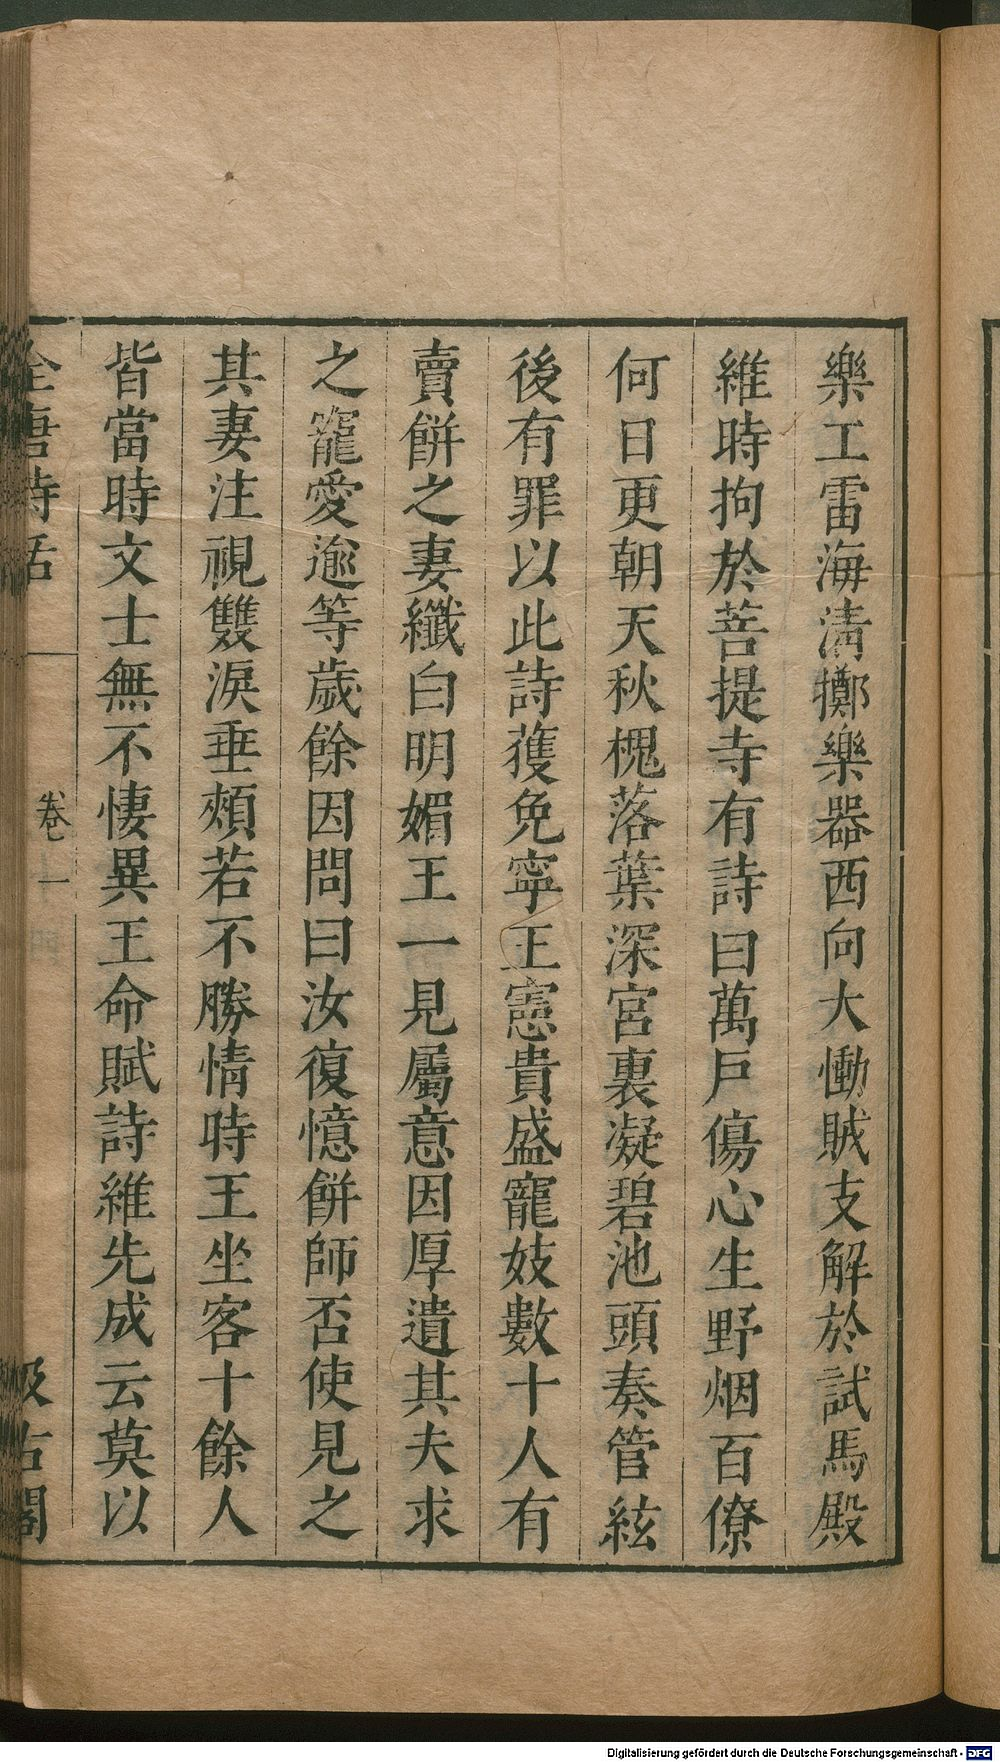 樂工雷海淸擲樂器西向大慟賊支解於試馬殿
維時拘於菩提寺有詩曰萬戸傷心生野烟百僚
何日更朝天秋槐落葉深宮裏凝碧池頭奏管絃
後有罪以此詩獲免寧王憲貴盛寵妓數十人有
賣餅之妻纖白明媚王一見屬意因厚遺其夫求
之寵愛逾等歲餘因問曰汝復憶餅師否使見之
其妻注視雙淚垂頰若不勝情時王坐客十餘人
皆當時文士無不悽異王命賦詩維先成云莫以
全唐詩話
卷一
汲古閣
Digitalisierung gefördert durch die Deutsche Forschungsgemeinschaft - DFG